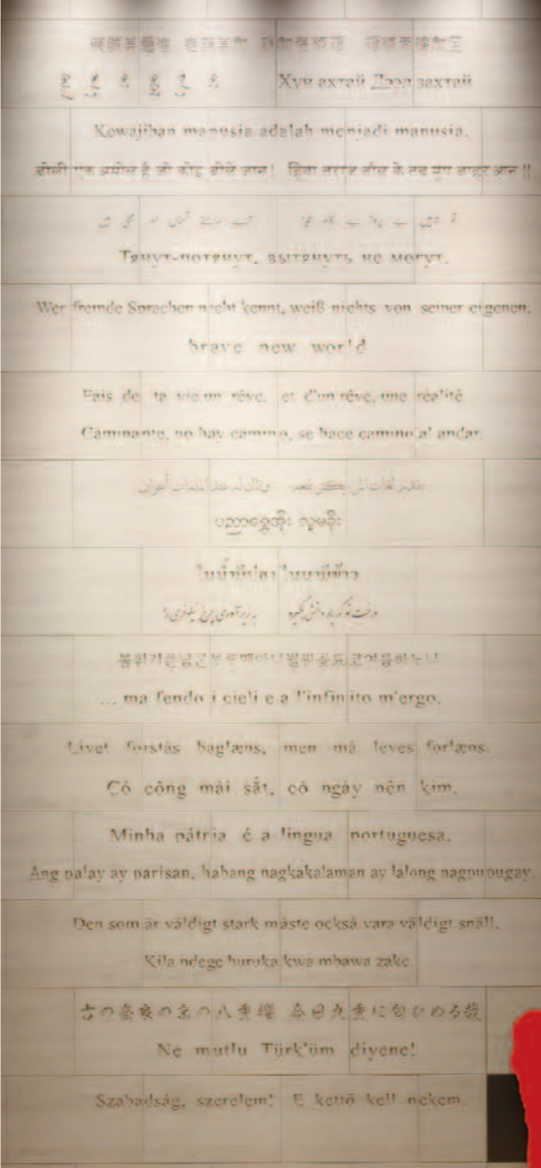 Хүн ахтай Дээл захтай
Kewajiban manusia adalah menjadi manusia.
बोली एक अमोल है जो कोइ बोले जान। हिया तराजू तौल के तब मुख बाहर आन॥
Тянут-потянут, вытянуть не могут.
Wer fremde Sprachen nicht kennt, weiß nichts von seiner eigenen.
brave new world
Fais de ta vie un rêve, et d'un rêve, une réalité
Caminante, no hay camino, se hace camino al andar.
ပညာရွှေအိုး လူမခိုး
ในน้ำมีปลา ในนามีข้าว
درخت تو گر بار دانش بگیرد به زیر آوری چرخ نیلوفری را
불휘기픈남ᄀᆞᆫᄇᆞᄅᆞ매아니뮐ᄊᆡ곶됴코여름하ᄂᆞ니
... ma fendo i cieli e a l'infinito m'ergo.
Livet forstås baglæns, men må leves forlæns.
Có công mài sắt, có ngày nên kim.
Minha pátria é a língua portuguesa.
Ang palay ay parisan, habang nagkakalaman ay lalong nagpupugay.
Den som är väldigt stark måste också vara väldigt snäll.
Kila ndege huruka kwa mbawa zake.
古の奈良の京の八重櫻 今日九重に匂ひぬる哉
Ne mutlu Türk'üm diyene!
Szabadság, szerelem! E kettő kell nekem.